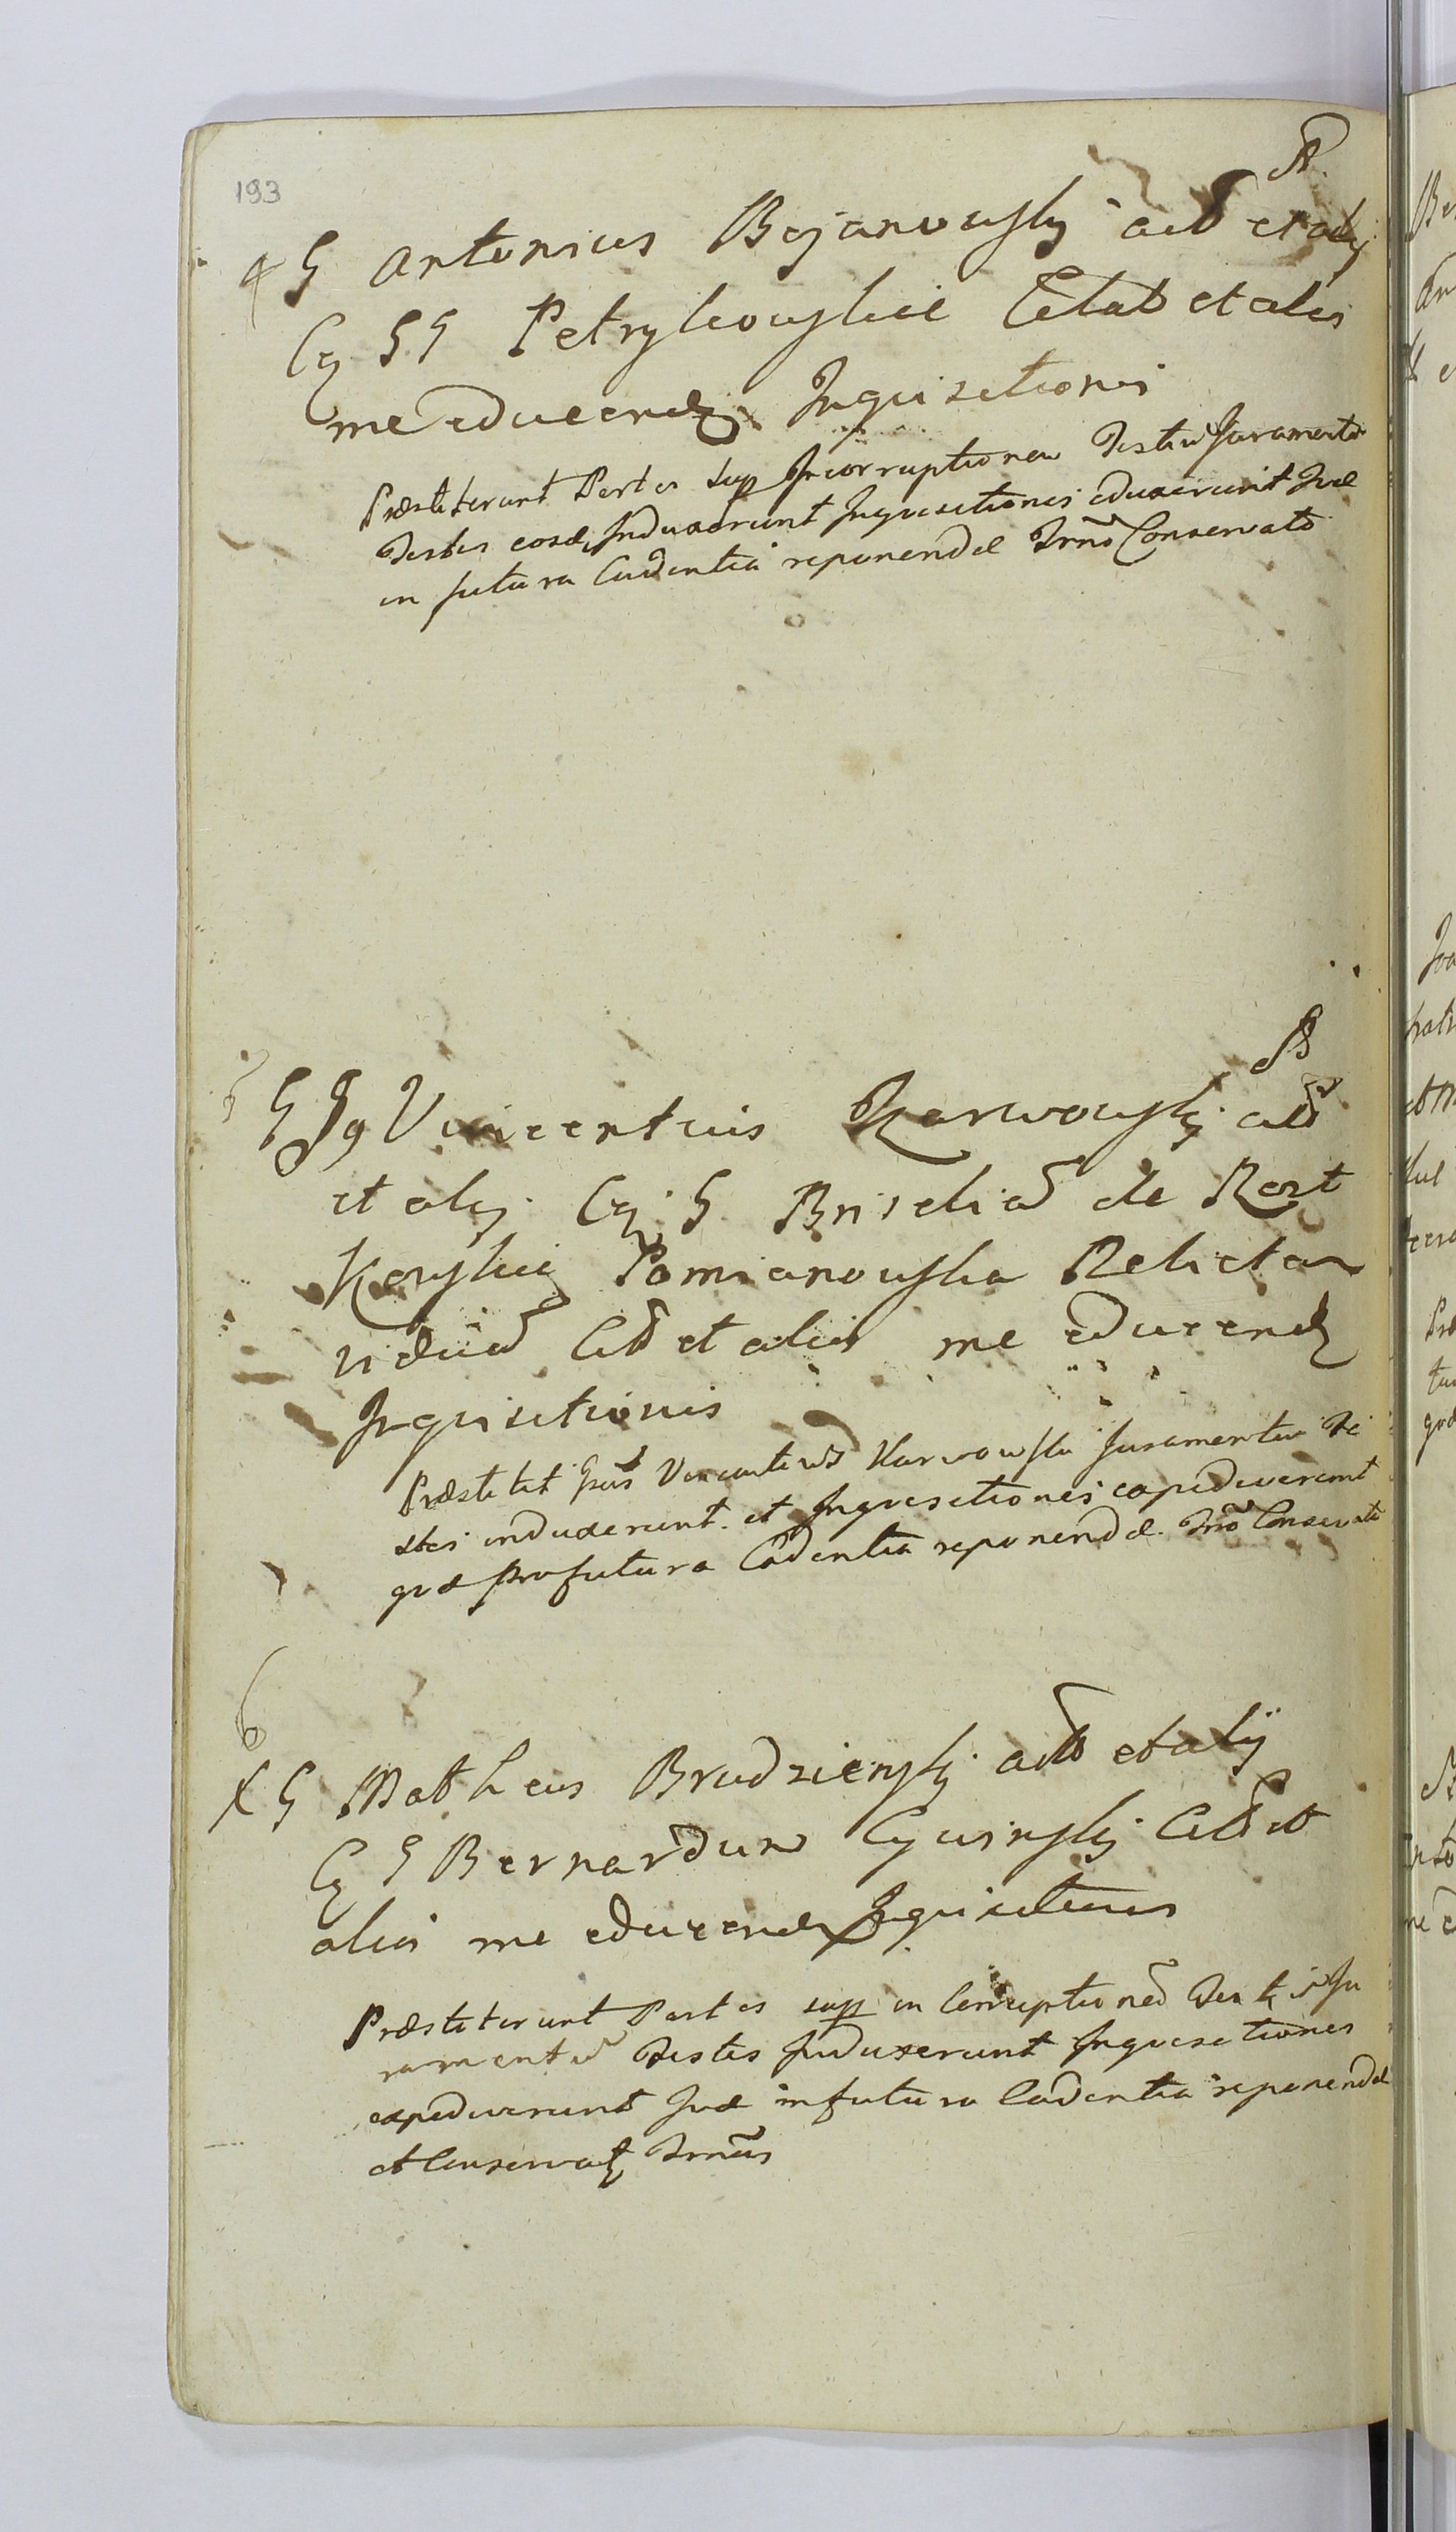 193
4 G Antonius Bojanowsky act et alij
Cq GG Petrykowskie Citat et alios
me educendae Inquisitionis
Praestiterunt Partes sup Incorruptionem Testiu Juramenta
Testes eosde Induxerunt Inquisitiones eduxerunt Quae
in futura Cadentia reponendae Trno Conservato
5
G Vincentius Karwowsky act
et alij Cq G de
Pomianowska Relictam
viduam Cit et alios me educend
Inquisitionis
Praestitit Gsus Vincentius Karwowski Juramentu Te
stes induxerunt et Inquisitiones expediverunt
quae pro futura Cadentia reponendae Trno Conservato
6
G Matheus Brudziensky act et alij
Cq G Bernardum Cywinsky Cit et
alios me educend Inquisitionis
Praestiterunt Partes sup in Corruptione Testis Ju
ramentu Testes Induxerunt Inquisitiones
expediverunt Quae in futura Cadentia reponendae
et Conservat Trnus